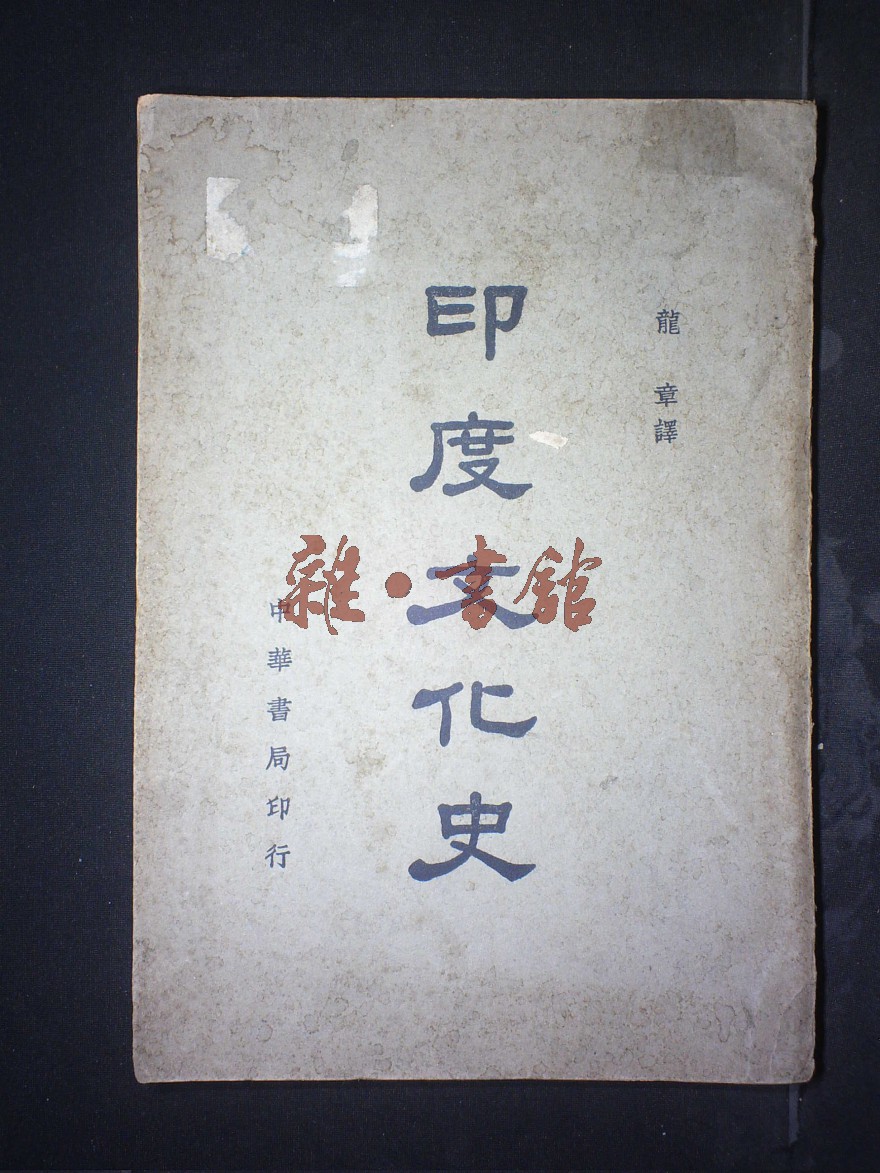 龍章譯
印度文化史
中華書局印行
雜·書館